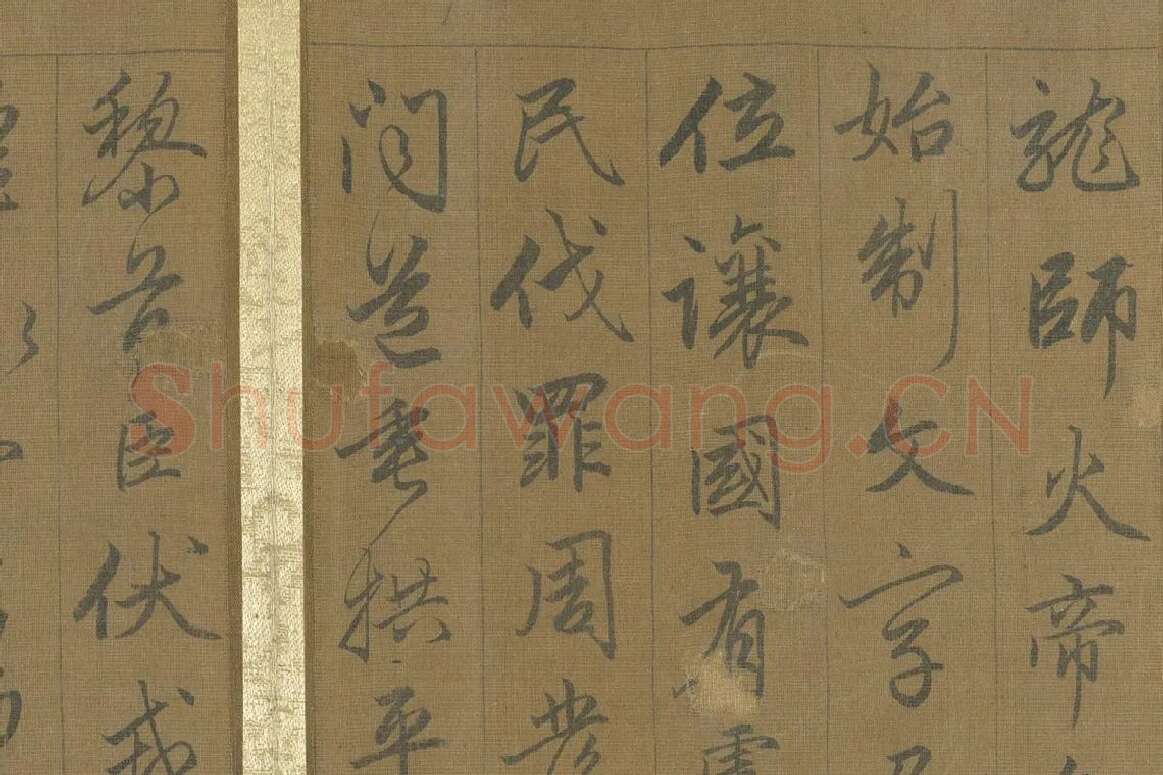 龍師火帝
始制文字
位讓國有虞
民伐罪周發
問道垂拱平
黎首臣伏戎
Shufawang.CN